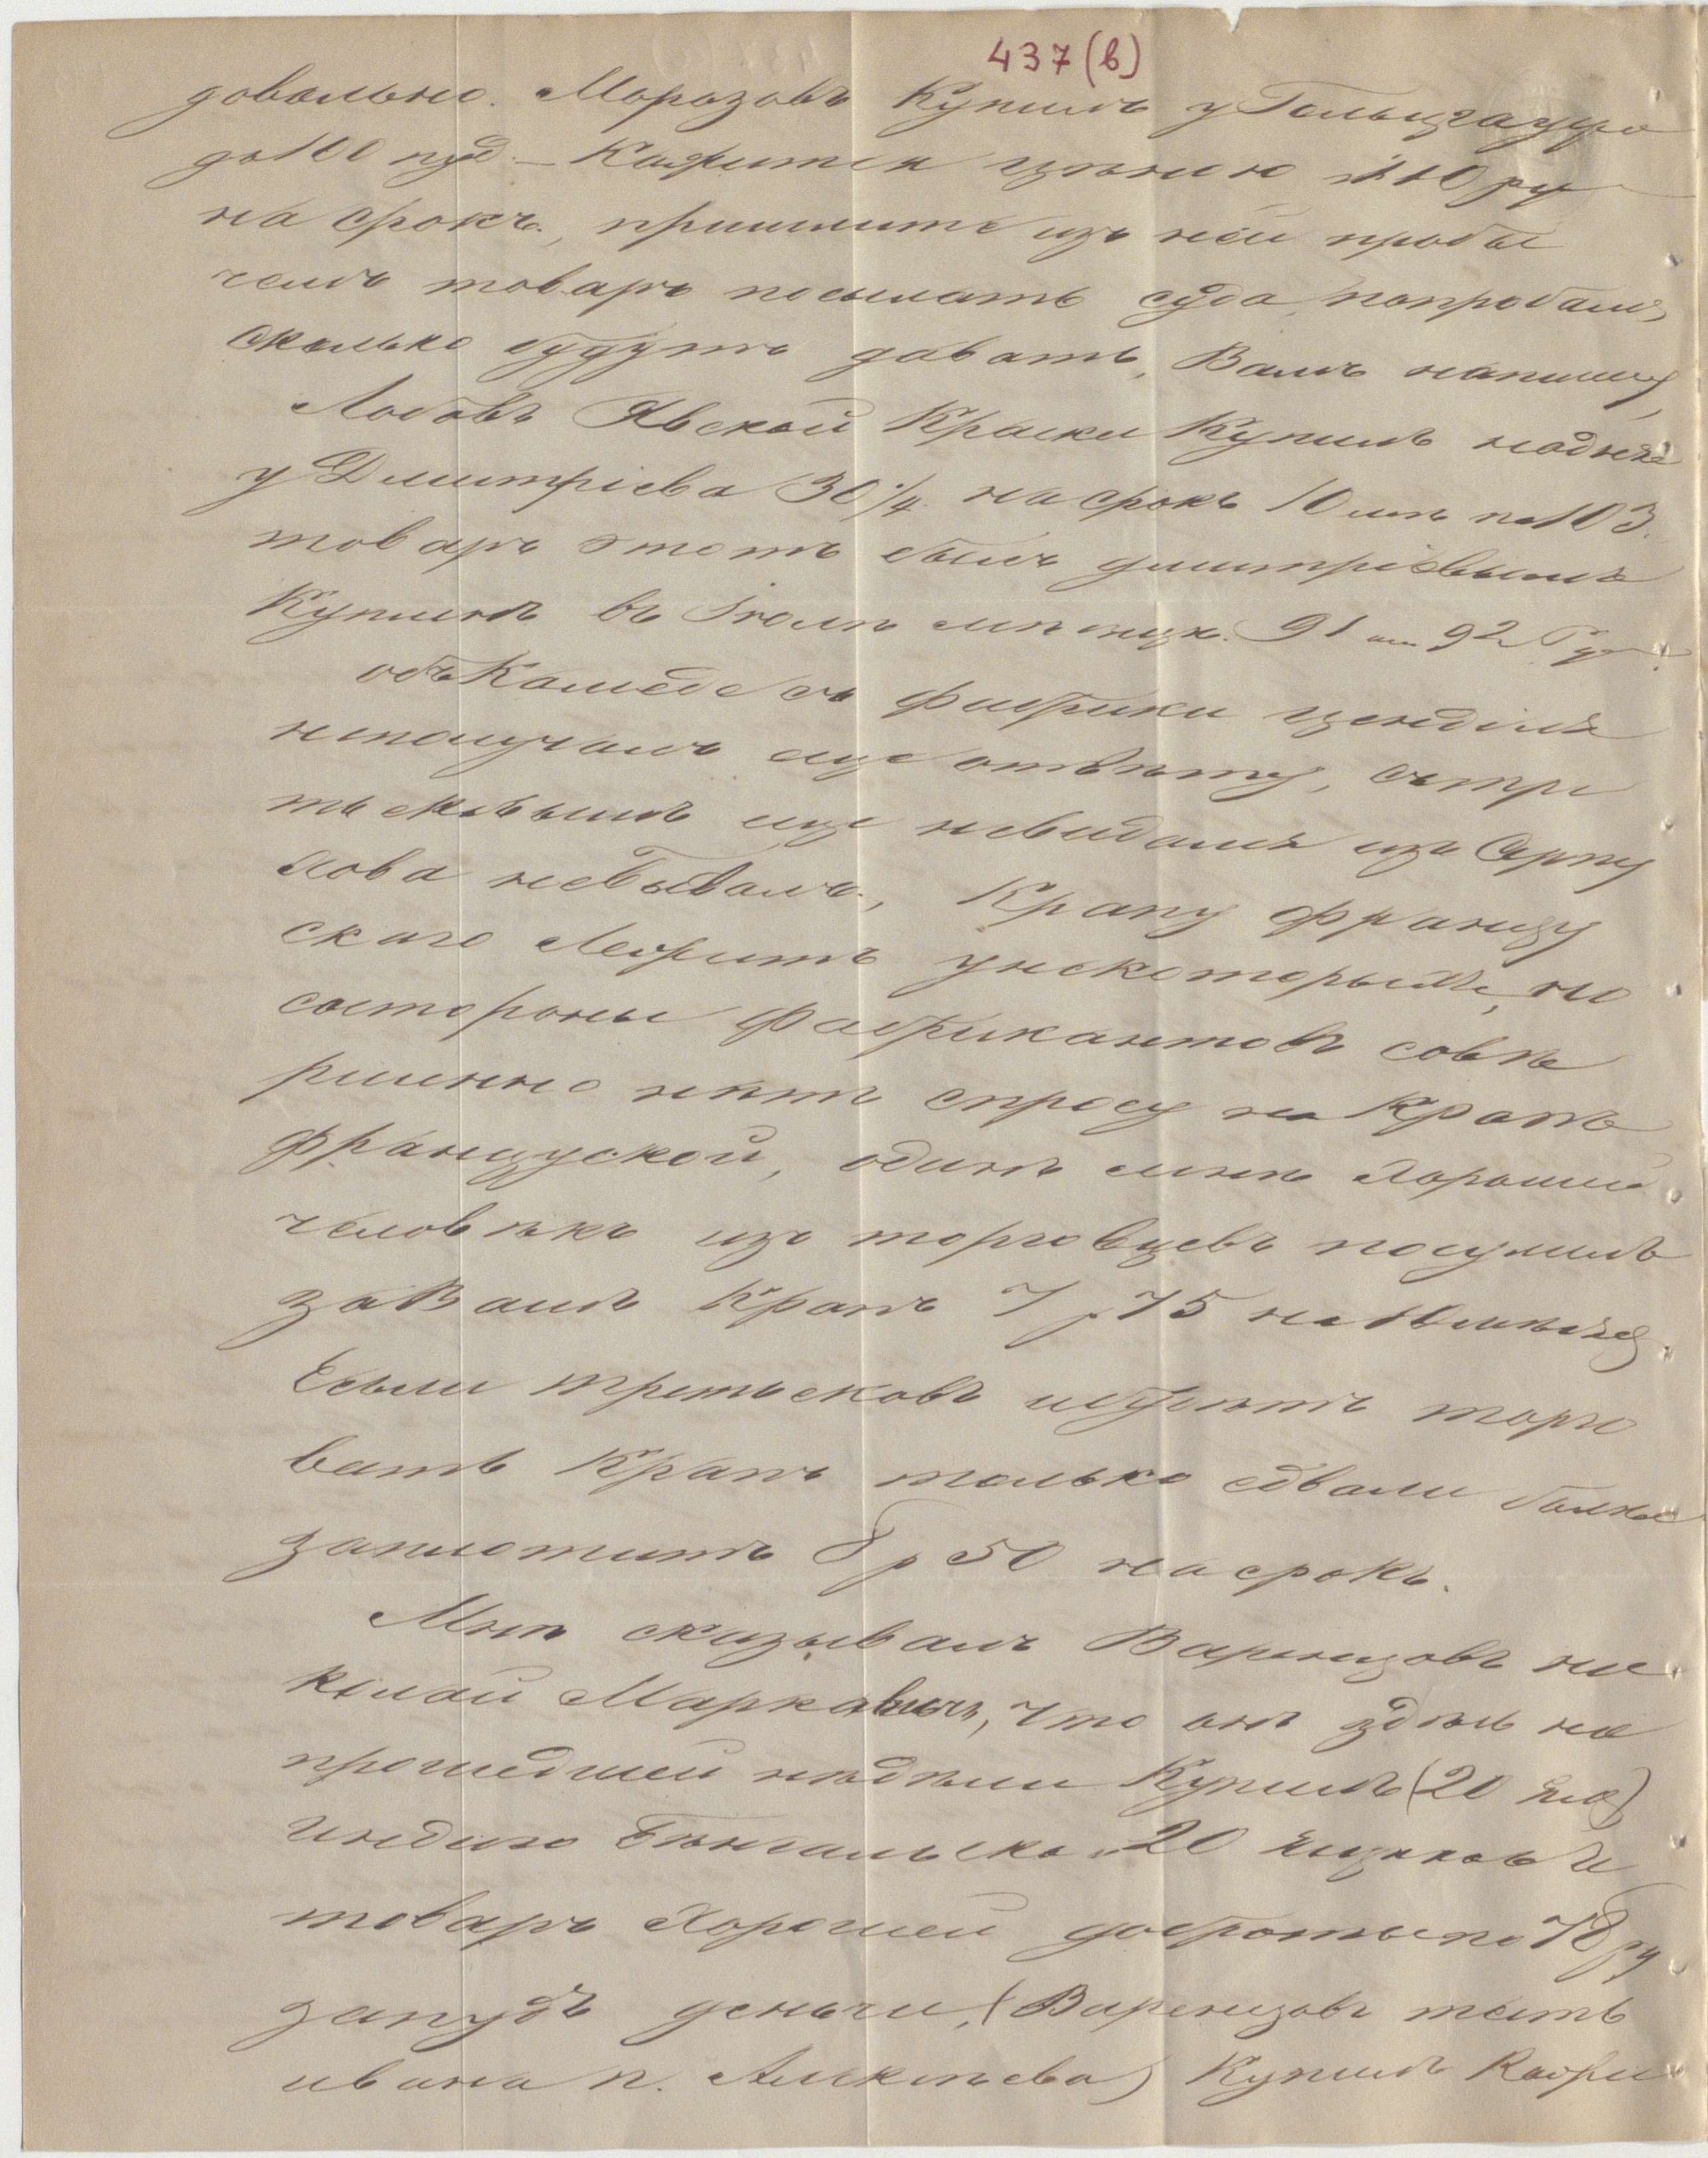 437 (в)
довольно. Морозовъ Купилъ у Гольцгауера
до 100 пуд. – Кажится цѣною 110 ру
на срокъ., пришлите изъ ней пробы
чемъ товаръ посылать суда, попробаю,
сколько будутъ давать, Вамъ напишу,
Лобовъ Явской Краски Купилъ надняхъ
у Дмитріева 30/4 на срокъ 10 мѣ по 103.
товаръ этотъ былъ дмитріевымъ
Купленъ въ 91 92 Ру.
объ Камеде съ фабрики цендиля
неполучалъ еще отвѣту, сътре
тьековымъ еще невидался изъ Серпу
хова небывалъ, Крапу францу
скаго лежитъ унекоторыхъ, но
состороны фабрикантовъ совѣ
ршенно нѣтъ спросу на Крапъ
французской, одинъ мнѣ хорошей
человѣкъ изъ торговцевъ посулилъ
заВашъ Крапъ 7 р 75 на 10 мѣсяц.
Ежели третьековъ торго
вать Крапъ только едвали болѣе
заплотитъ 8 р 50 насрокъ.
Мнѣ сказывалъ Варенцовъ ни
колай Маркавичь, что онъ здѣсь на
прошедшей недѣли Купилъ (20 )
индиго Бѣнгальско 20 ящиковъ и
товаръ хорошей доброты по 78 ру
запудъ деньги, (Варенцовъ тесть
ивана п. Алексѣева) Купилъ